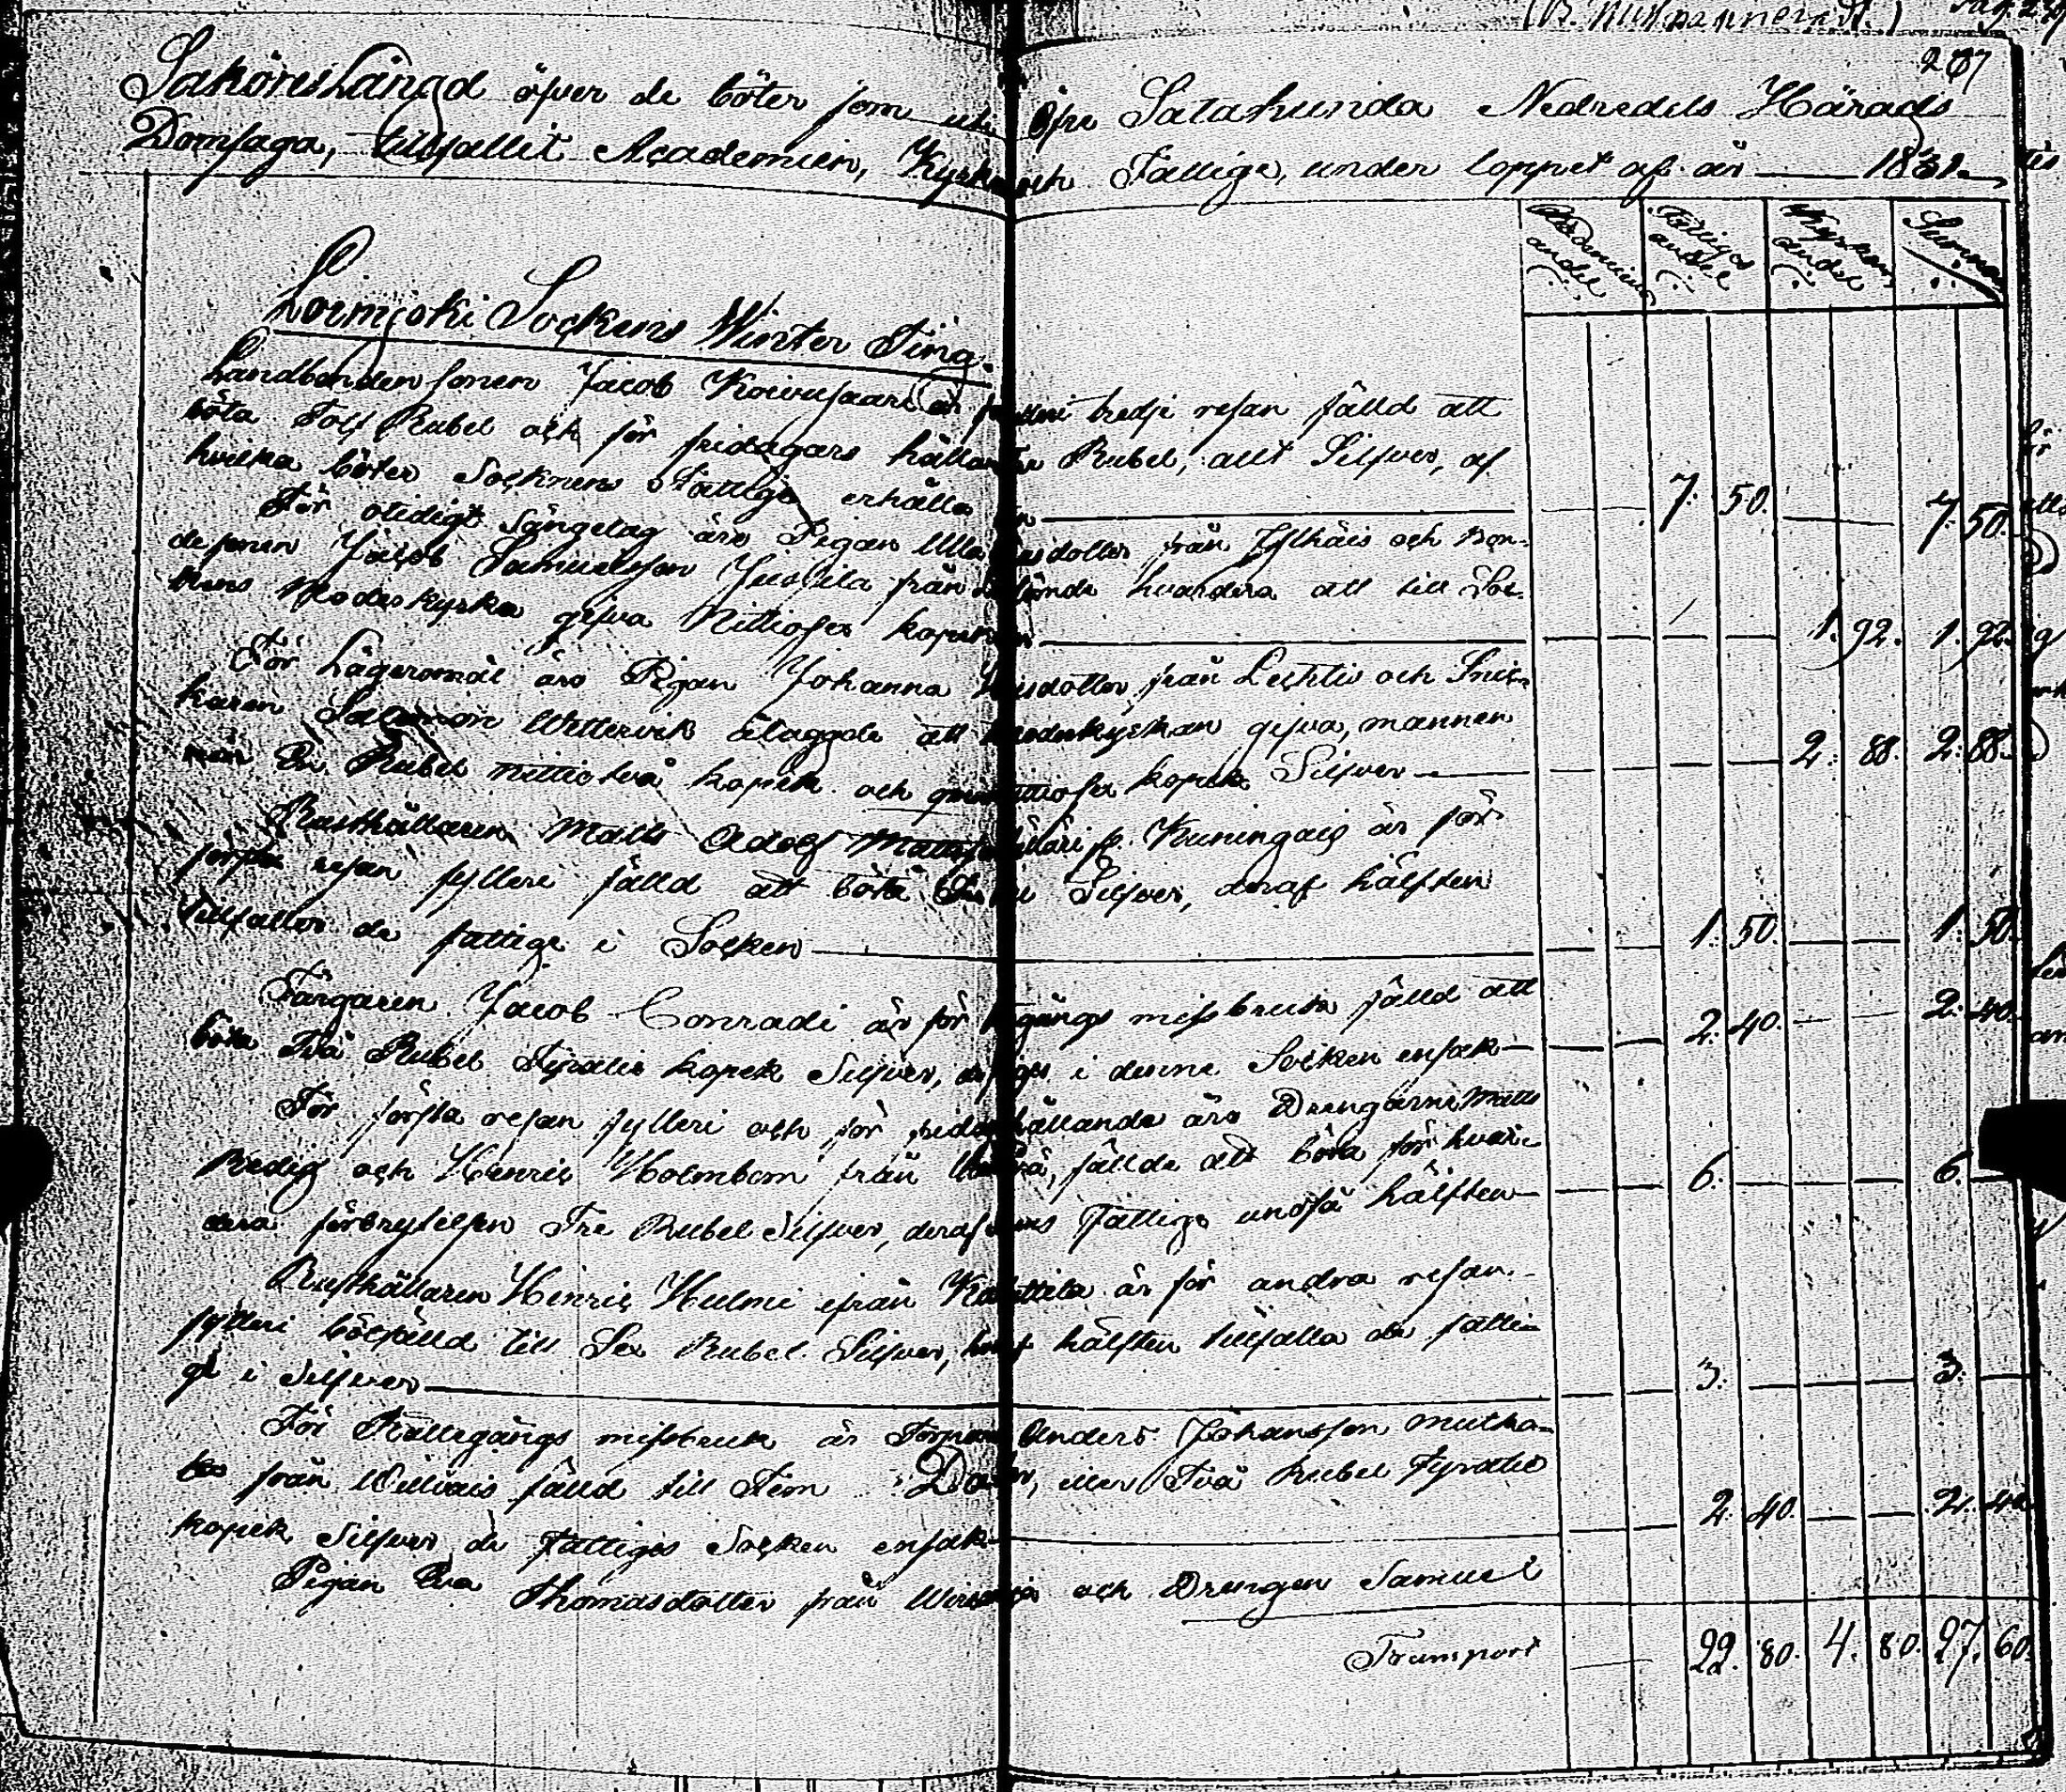 207
Saköreslängd öfver de böter som uti Öfre Satakunda Nedredels Härads
Domsaga, tillfallit Academien, Kyrkan och Fattige, under loppet af år 1831.
Academiens andel
Fattiges andel
Kyrkans andel
Summa
Loimjoki Sockens Winter Ting.
Landbondesonen Jacob Koivusaari är fylleri tredje resan fälld att
böta Tolf Rubel och för fridagars hållan Tre Rubel, allt Silfver, af
hvilka böter Socknens Fattige erhålla 7. 50. 7. 50.
För otidigt sängelag äro Pigan Ulla dotter från Ylhäis och Bon-
desonen Jacob Samuelsson Juckila från hvardera att till Soc-
kens Moderkyrka gifva Nittiosex kopek 1. 92. 1. 92.
För Lägersmål äro Pigan Johanna dotter från Lechtis och Snic-
karen Salomon Wettervik ålaggde att Moderkyrkan gifva, mannen
En Rubel nittiotvå kopek och qvinnan nittiosex kopek Silfver 2. 88. 2. 88.
Rusthållaren Matts Adolf Kuningais är för
första resan fylleri fälld att böta Tre Silfver, deraf hälften
tillfaller de fattige i Socken 1. 50. 1. 50.
Färgaren Jacob Conradi är för missbruk fälld att
böta Två Rubel Fyratio kopek Silfver, i denne Socken ensak 2. 40. 2. 40.
För första resan fylleri och för hållande äro Drengarne Matts
Redig och Henric Holmbom från fällde att böta för hvar-
dera förbrytelsen Tre Rubel Silfver, deraf Fattige undfå hälften 6. 6.
Rusthållaren Henric Hulmi ifrån är för andra resan
fylleri bötfälld till Sex Rubel Silfver, hvaraf hälften tillfalla de fatti-
ge i Silfver 3. 3.
För Rättegångs missbruk är Torparen Anders Johansson
från fälld till Fem Daler, eller Två Rubel Fyratio
kopek Silfver de Fattiges Socken ensak 2. 40. 2. 40.
Pigan Eva Thomasdotter från och Drengen Samuel
Transport 22. 80. 4. 80. 27. 60.